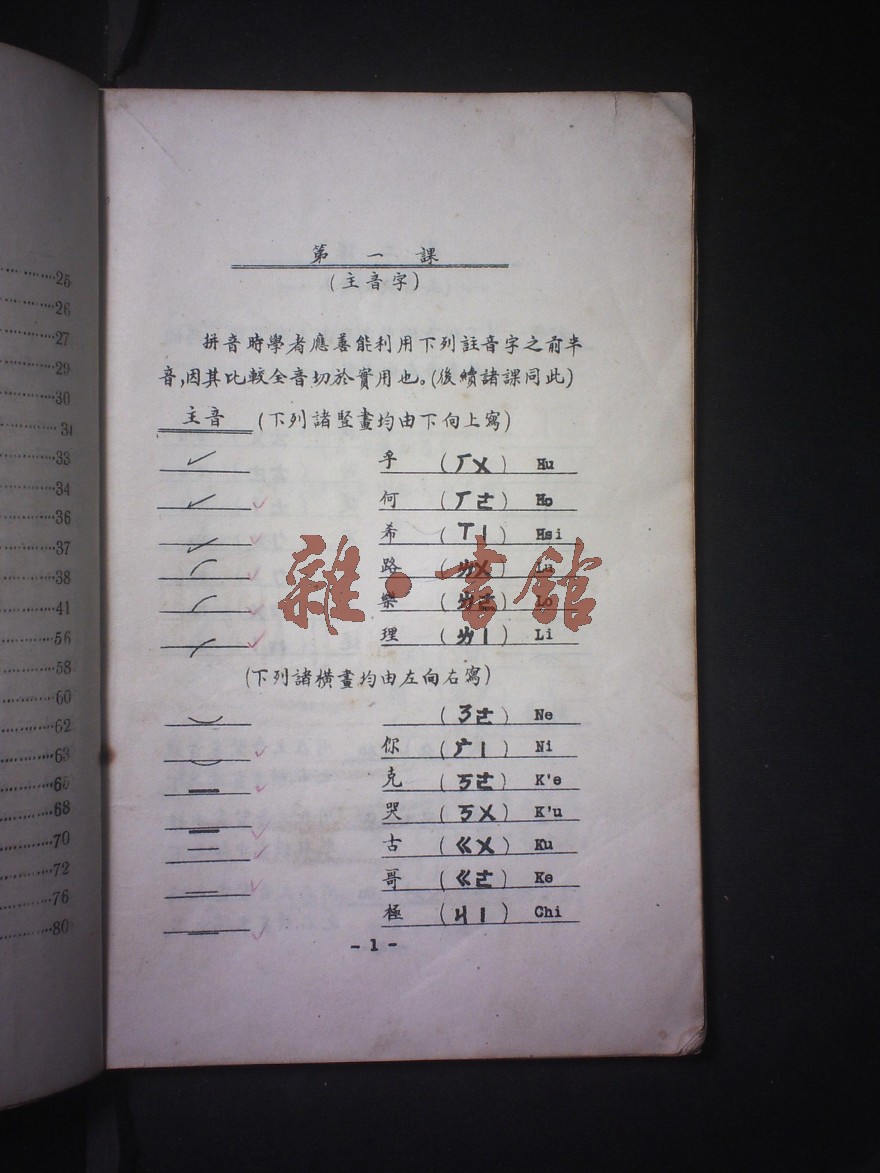 第一課
(主音字)
拼音時學者應善能利用下列註音字之前半
音,因其比較全音切於實用也。(後續諸課同此)
主音 (下列諸竪畫均由下向上寫)
孚 (ㄏㄨ) Hu
何 (ㄏㄜ) Ho
希 (ㄒㄧ) Hsi
路 (ㄌㄨ) Lu
樂 (ㄌㄜ) Lo
理 (ㄌㄧ) Li
(下列諸橫畫均由左向右寫)
(ㄋㄜ) Ne
你 (ㄏㄧ) Ni
克 (ㄎㄜ) K'e
哭 (ㄎㄨ) K'u
古 (ㄍㄨ) Ku
哥 (ㄍㄜ) Ke
極 (ㄐㄧ) Chi
- 1 -
25
26
27
29
30
31
33
34
36
37
38
41
56
58
60
62
63
65
68
70
72
76
80
雜·書館